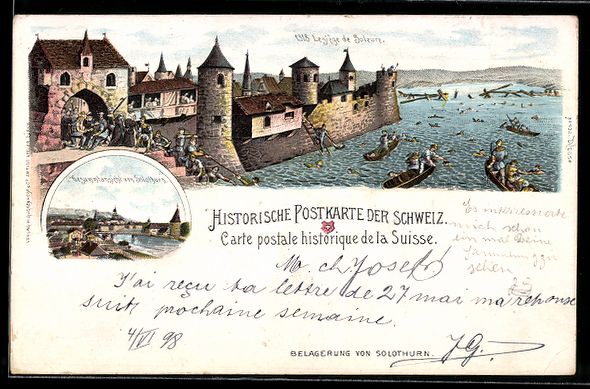 1318 Le siège de Soleure.
Gesammtansicht von Solothurn
HISTORISCHE POSTKARTE DER SCHWEIZ.
Carte postale historique de la Suisse.
Es interessirte
mich schon
ein mal deine
Sammlung zu
sehen.
M. ch Josef
J'ai reçu ta lettre de 27 mai ma reponse
suit prochaine semaine.
4/VI 98
J.G.
BELAGERUNG VON SOLOTHURN.